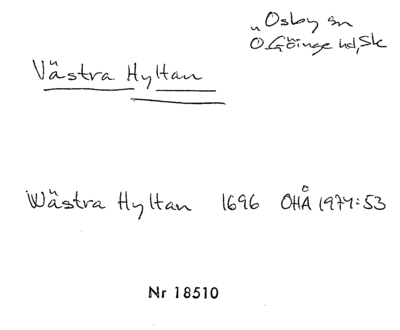 „Osby sn
Ö.Göinge hd, Sk
Västra Hyltan
Wästra Hyltan 1696 OHÅ 1974:53
Nr 18510